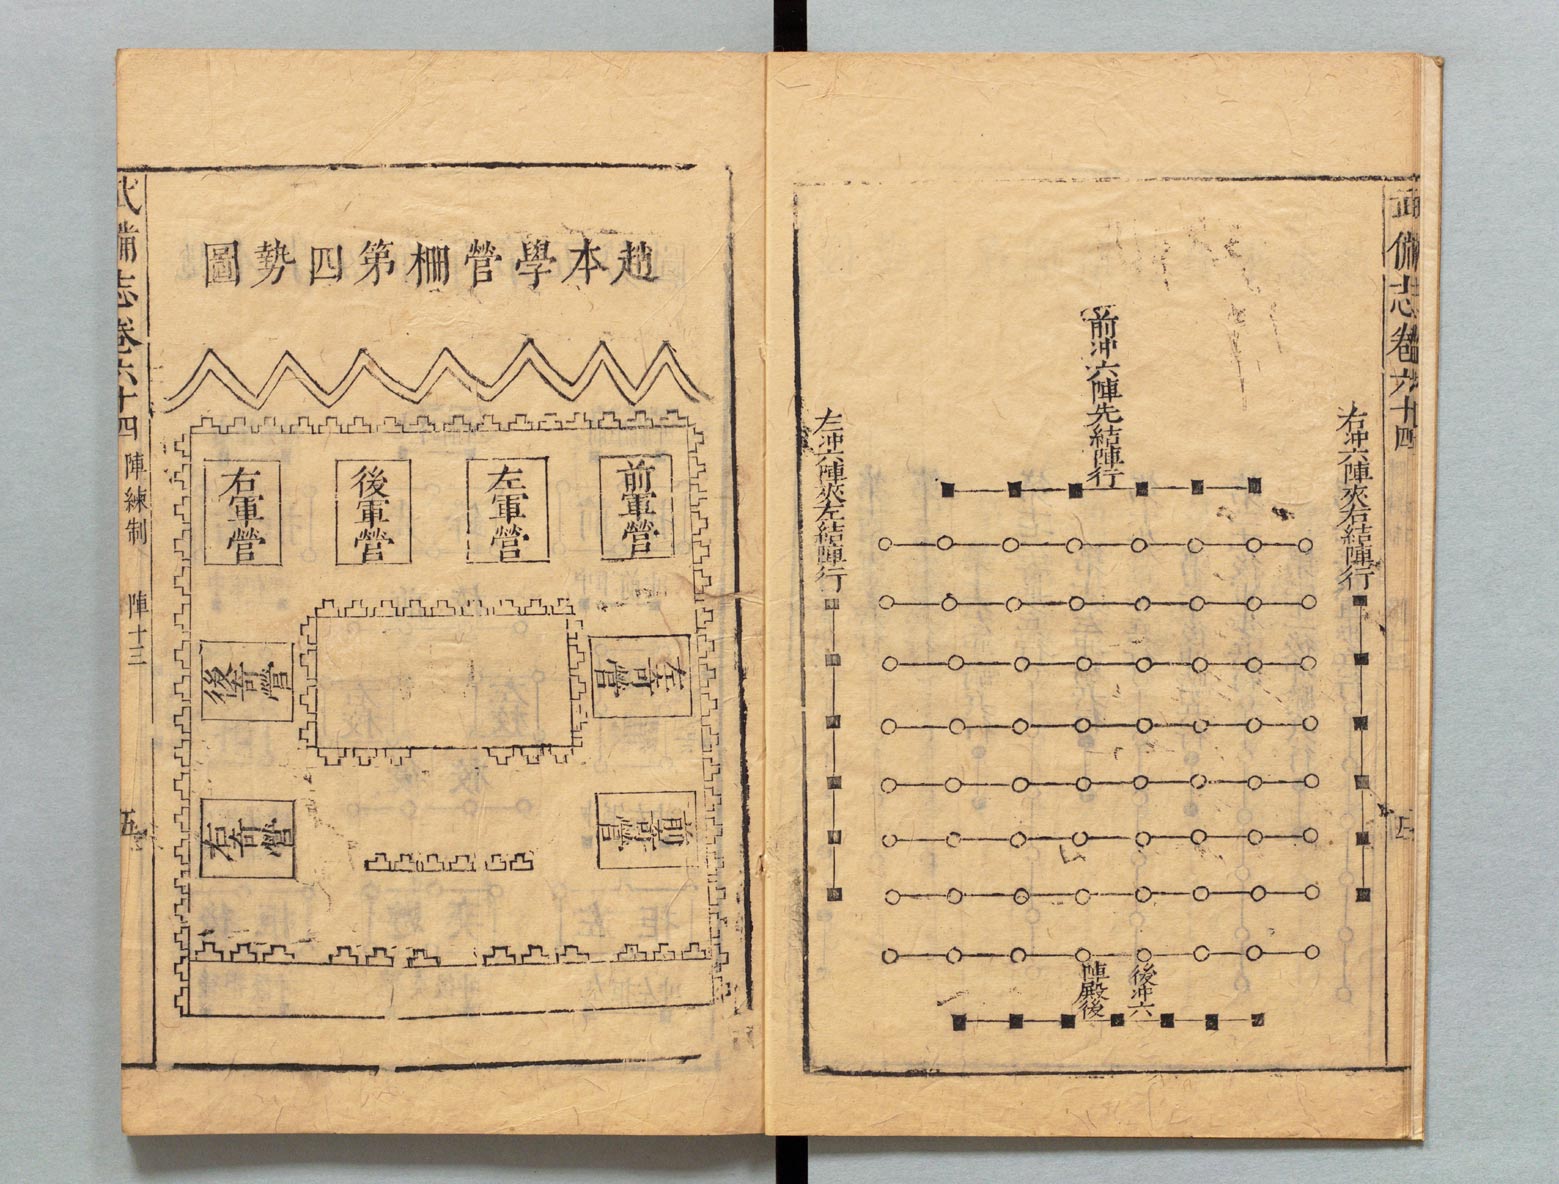 武備志卷六十四
前冲六陣先結陣行
右冲六陣夾右結陣行
左冲六陣夾左結陣行
後冲六
陣殿後
趙本學營柵第四勢圖
前軍營
左軍營
後軍營
右軍營
左奇營
後奇營
前奇營
右奇營
武備志卷六十四
陣練制
陣十三
五